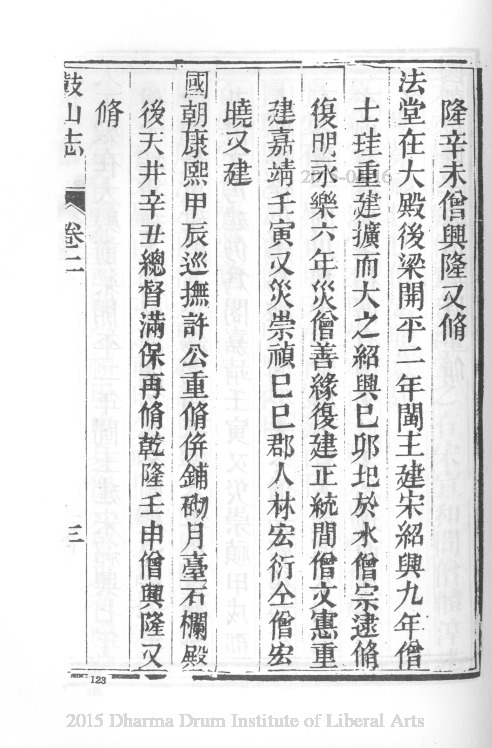 隆辛未僧興隆又脩
法堂在大殿後梁開平二年閩王建宋紹興九年僧
士珪重建擴而大之紹興己卯圮於水僧宗逮脩
復明永樂六年災僧善緣復建正統間僧文憲重
建嘉靖壬寅又災崇禎己巳郡人林宏衍仝僧宏
曉又建
國朝康熙甲辰巡撫許公重脩併鋪砌月臺石欄殿
後天井辛丑總督滿保再脩乾隆壬申僧興隆又
脩
鼓山志
卷二
三
123
2015 Dharma Drum Institute of Liberal Arts